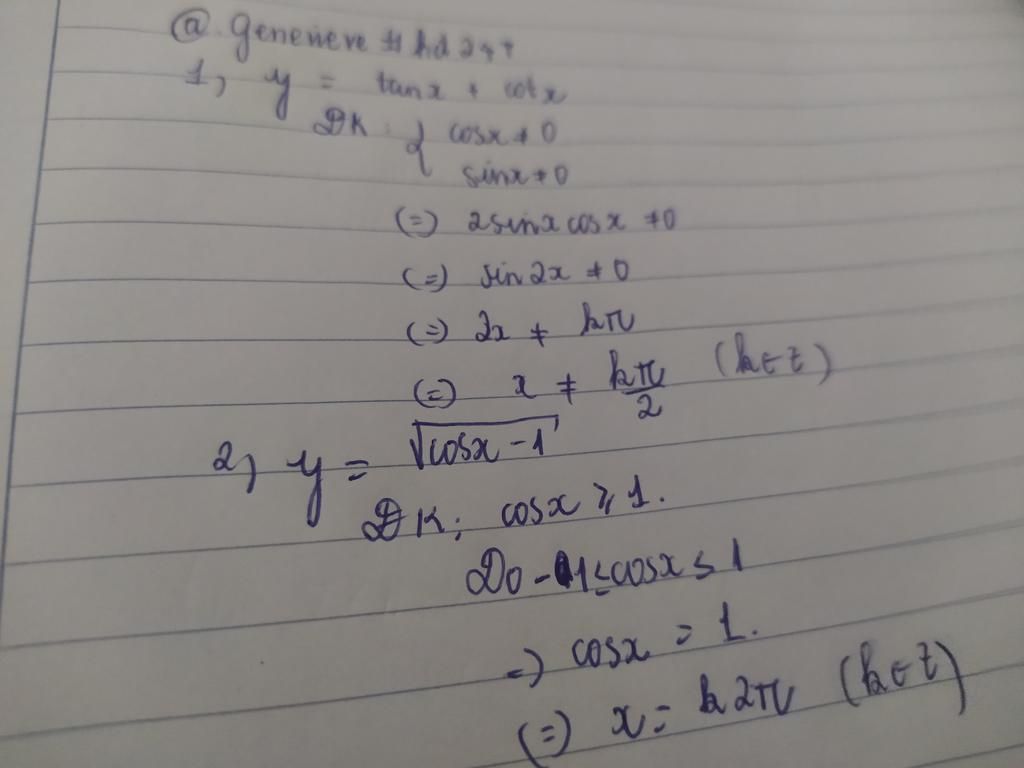 @ Genevieve # hd 247
1, y = tanx + cotx
ĐK: { cosx ≠ 0
sinx ≠ 0
(=) 2sinx cosx ≠ 0
(=) sin2x ≠ 0
(=) 2x ≠ kπ
(=) x ≠ kπ/2 (k ∈ Z)
2, y = √(cosx - 1)
ĐK: cosx ≥ 1.
Do -1 ≤ cosx ≤ 1
=) cosx = 1.
(=) x = k2π (k ∈ Z)